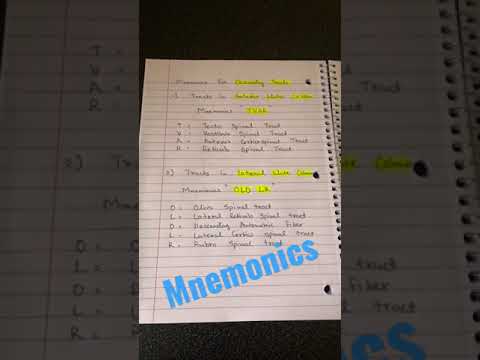 Mnemonics for Descending Tracts
1) Tracts in Anterior White Column
Mnemonic " TVAR
T = Tecto Spinal Tract
V = Vestibulo Spinal Tract
A = Anterior Corticospinal Tract
R = Reticulo Spinal Tract
2) Tracts in Lateral White Column
Mnemonics " OLD LR "
O = Olivo Spinal tract
L = Lateral Reticulo Spinal tract
D = Descending Autonomic Fiber
L = Lateral Cortico Spinal tract
R = Rubro Spinal tract
Mnemonics